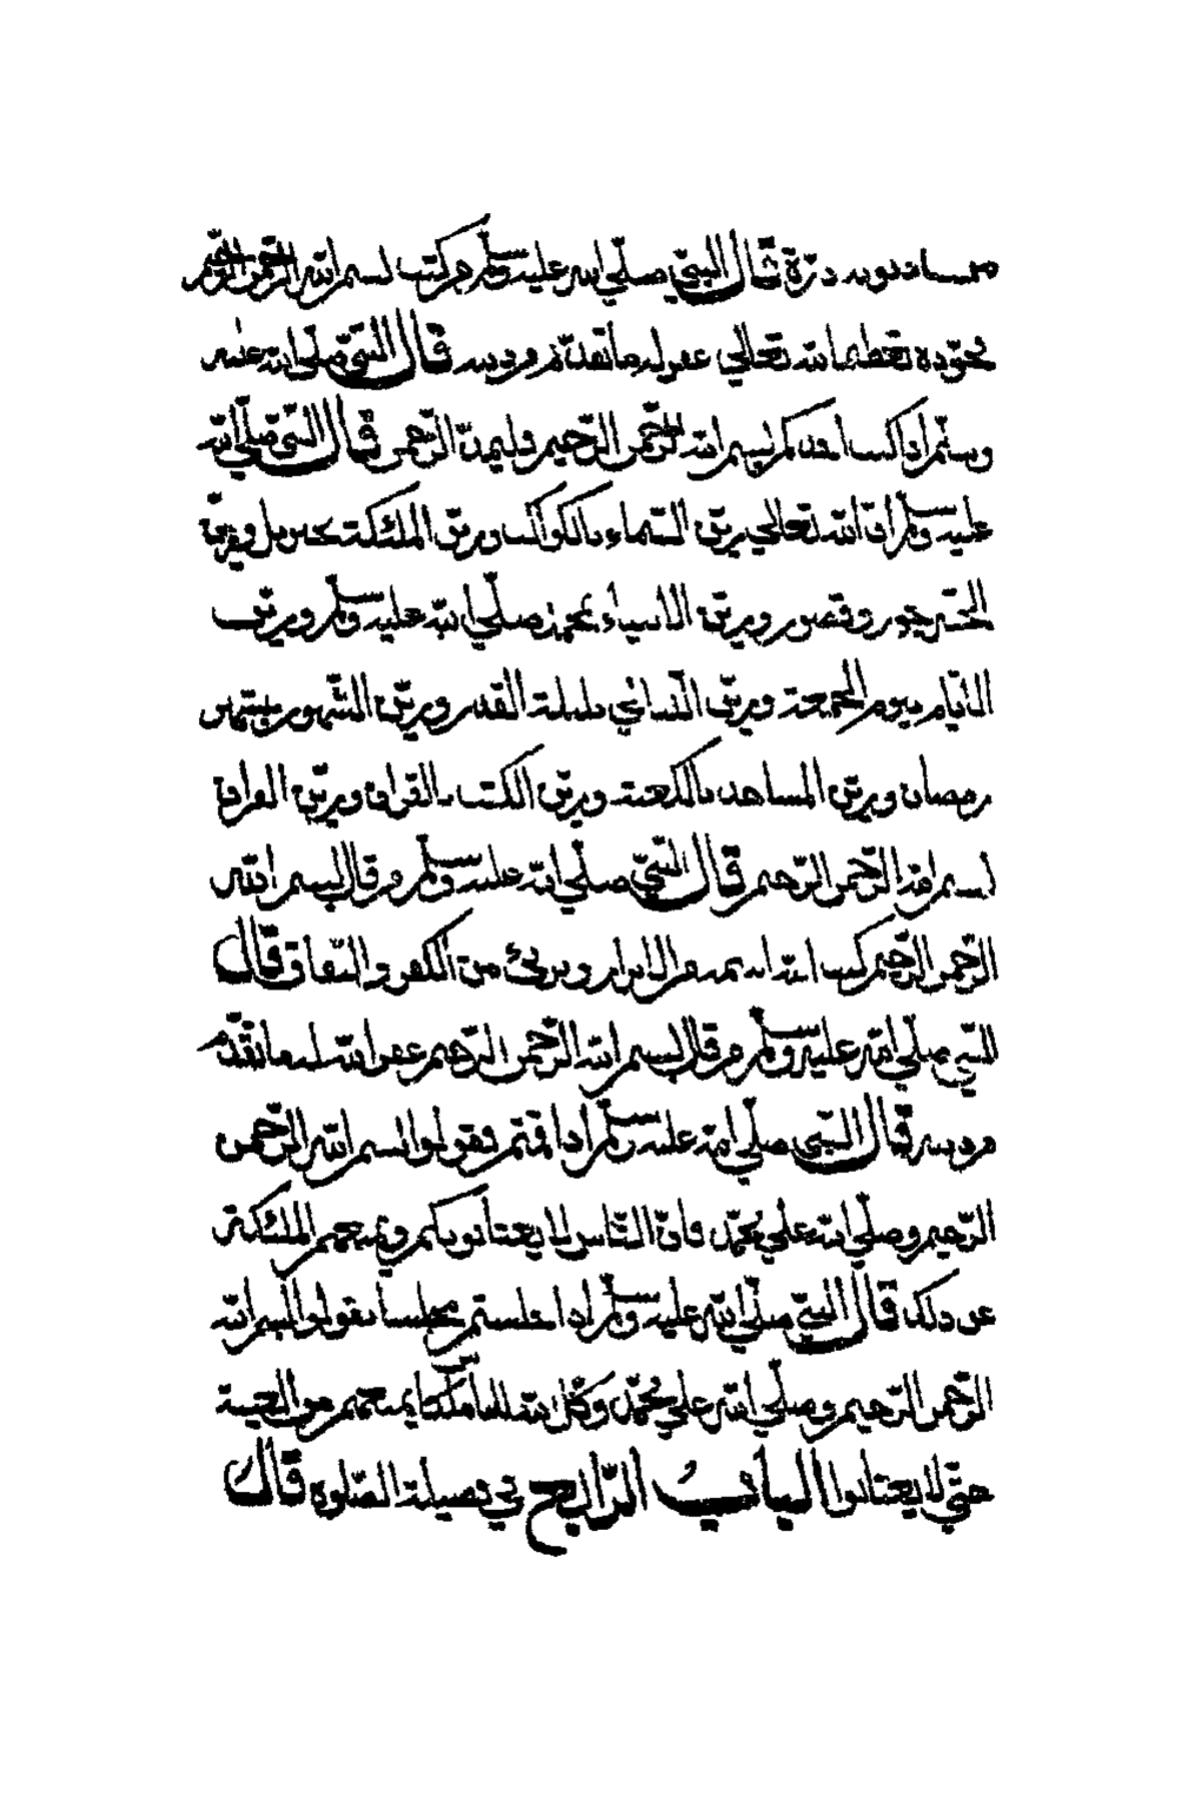 قال النبي صلي الله عليه وسلم من كتب بسم الله الرحمن الرحيم
فجوده تعظيما لله تعالي غفر له ما تقدم من ذنبه قال النبي صلي الله عليه
وسلم اذا كتب احدكم بسم الله الرحمن الرحيم فليمد الرحمن قال النبي صلي الله
عليه وسلم ان الله تعالي زين السماء بالكواكب وزين الملئكة بجبريل وزين
الجنة بحور وقصور وزين الانبياء بمحمد صلي الله عليه وسلم وزين
الايام بيوم الجمعة وزين الليالي بليلة القدر وزين الشهور بشهر
رمضان وزين المساجد بالكعبة وزين الكتب بالقران وزين القران
بسم الله الرحمن الرحيم قال النبي صلي الله عليه وسلم من قال بسم الله
الرحمن الرحيم كتب الله اسمه من الابرار وبرئ من الكفر والنفاق قال
النبي صلي الله عليه وسلم من قال بسم الله الرحمن الرحيم غفر الله له ما تقدم
من ذنبه قال النبي صلي الله عليه وسلم اذا قمتم فقولوا بسم الله الرحمن
الرحيم وصلي الله علي محمد فان الناس لا يغتابونكم ويمنعهم الملئكة
عن ذلك قال النبي صلي الله عليه وسلم اذا جلستم مجلسا فقولوا بسم الله
الرحمن الرحيم وصلي الله علي محمد وكل الله بكم ملكا يمنعهم من الغيبة
حتي لا يغتابوا الباب الرابع في فضيلة الصلوة قال